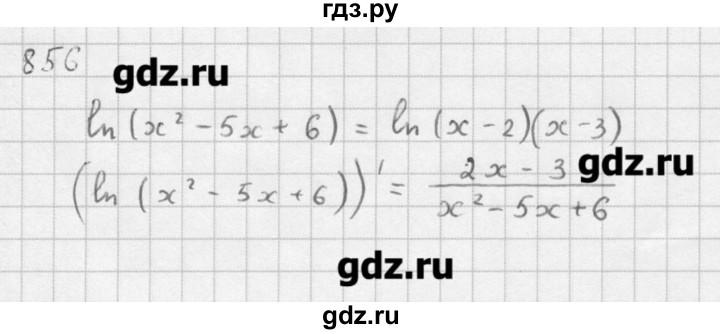 гдз.ру
856
gdz.ru
ln (x² - 5x + 6) = ln (x - 2)(x - 3)
gdz.ru
(ln (x² - 5x + 6))' = (2x - 3)/(x² - 5x + 6)
gdz.ru
gdz.ru